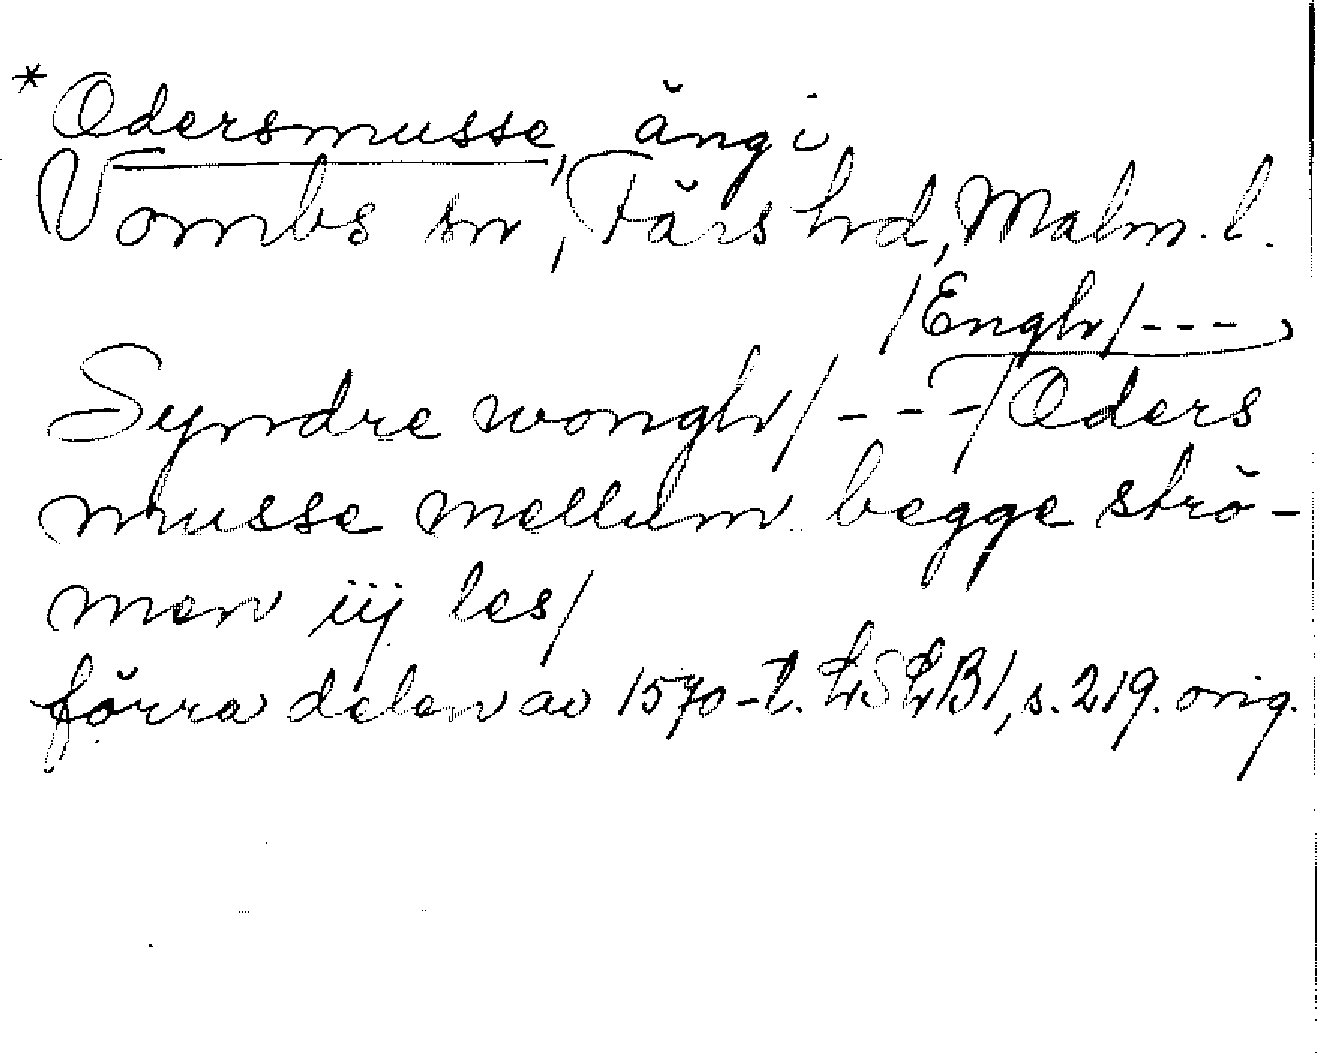 * Odersmusse, äng i
Vombs sn, Färs hd, Malm. l.
/Engh/ ---
Syndre wongh/ --- / Oders
musse mellum begge strö-
men iij les/
förra delen av 1570-t. LSLB1, s. 219. orig.